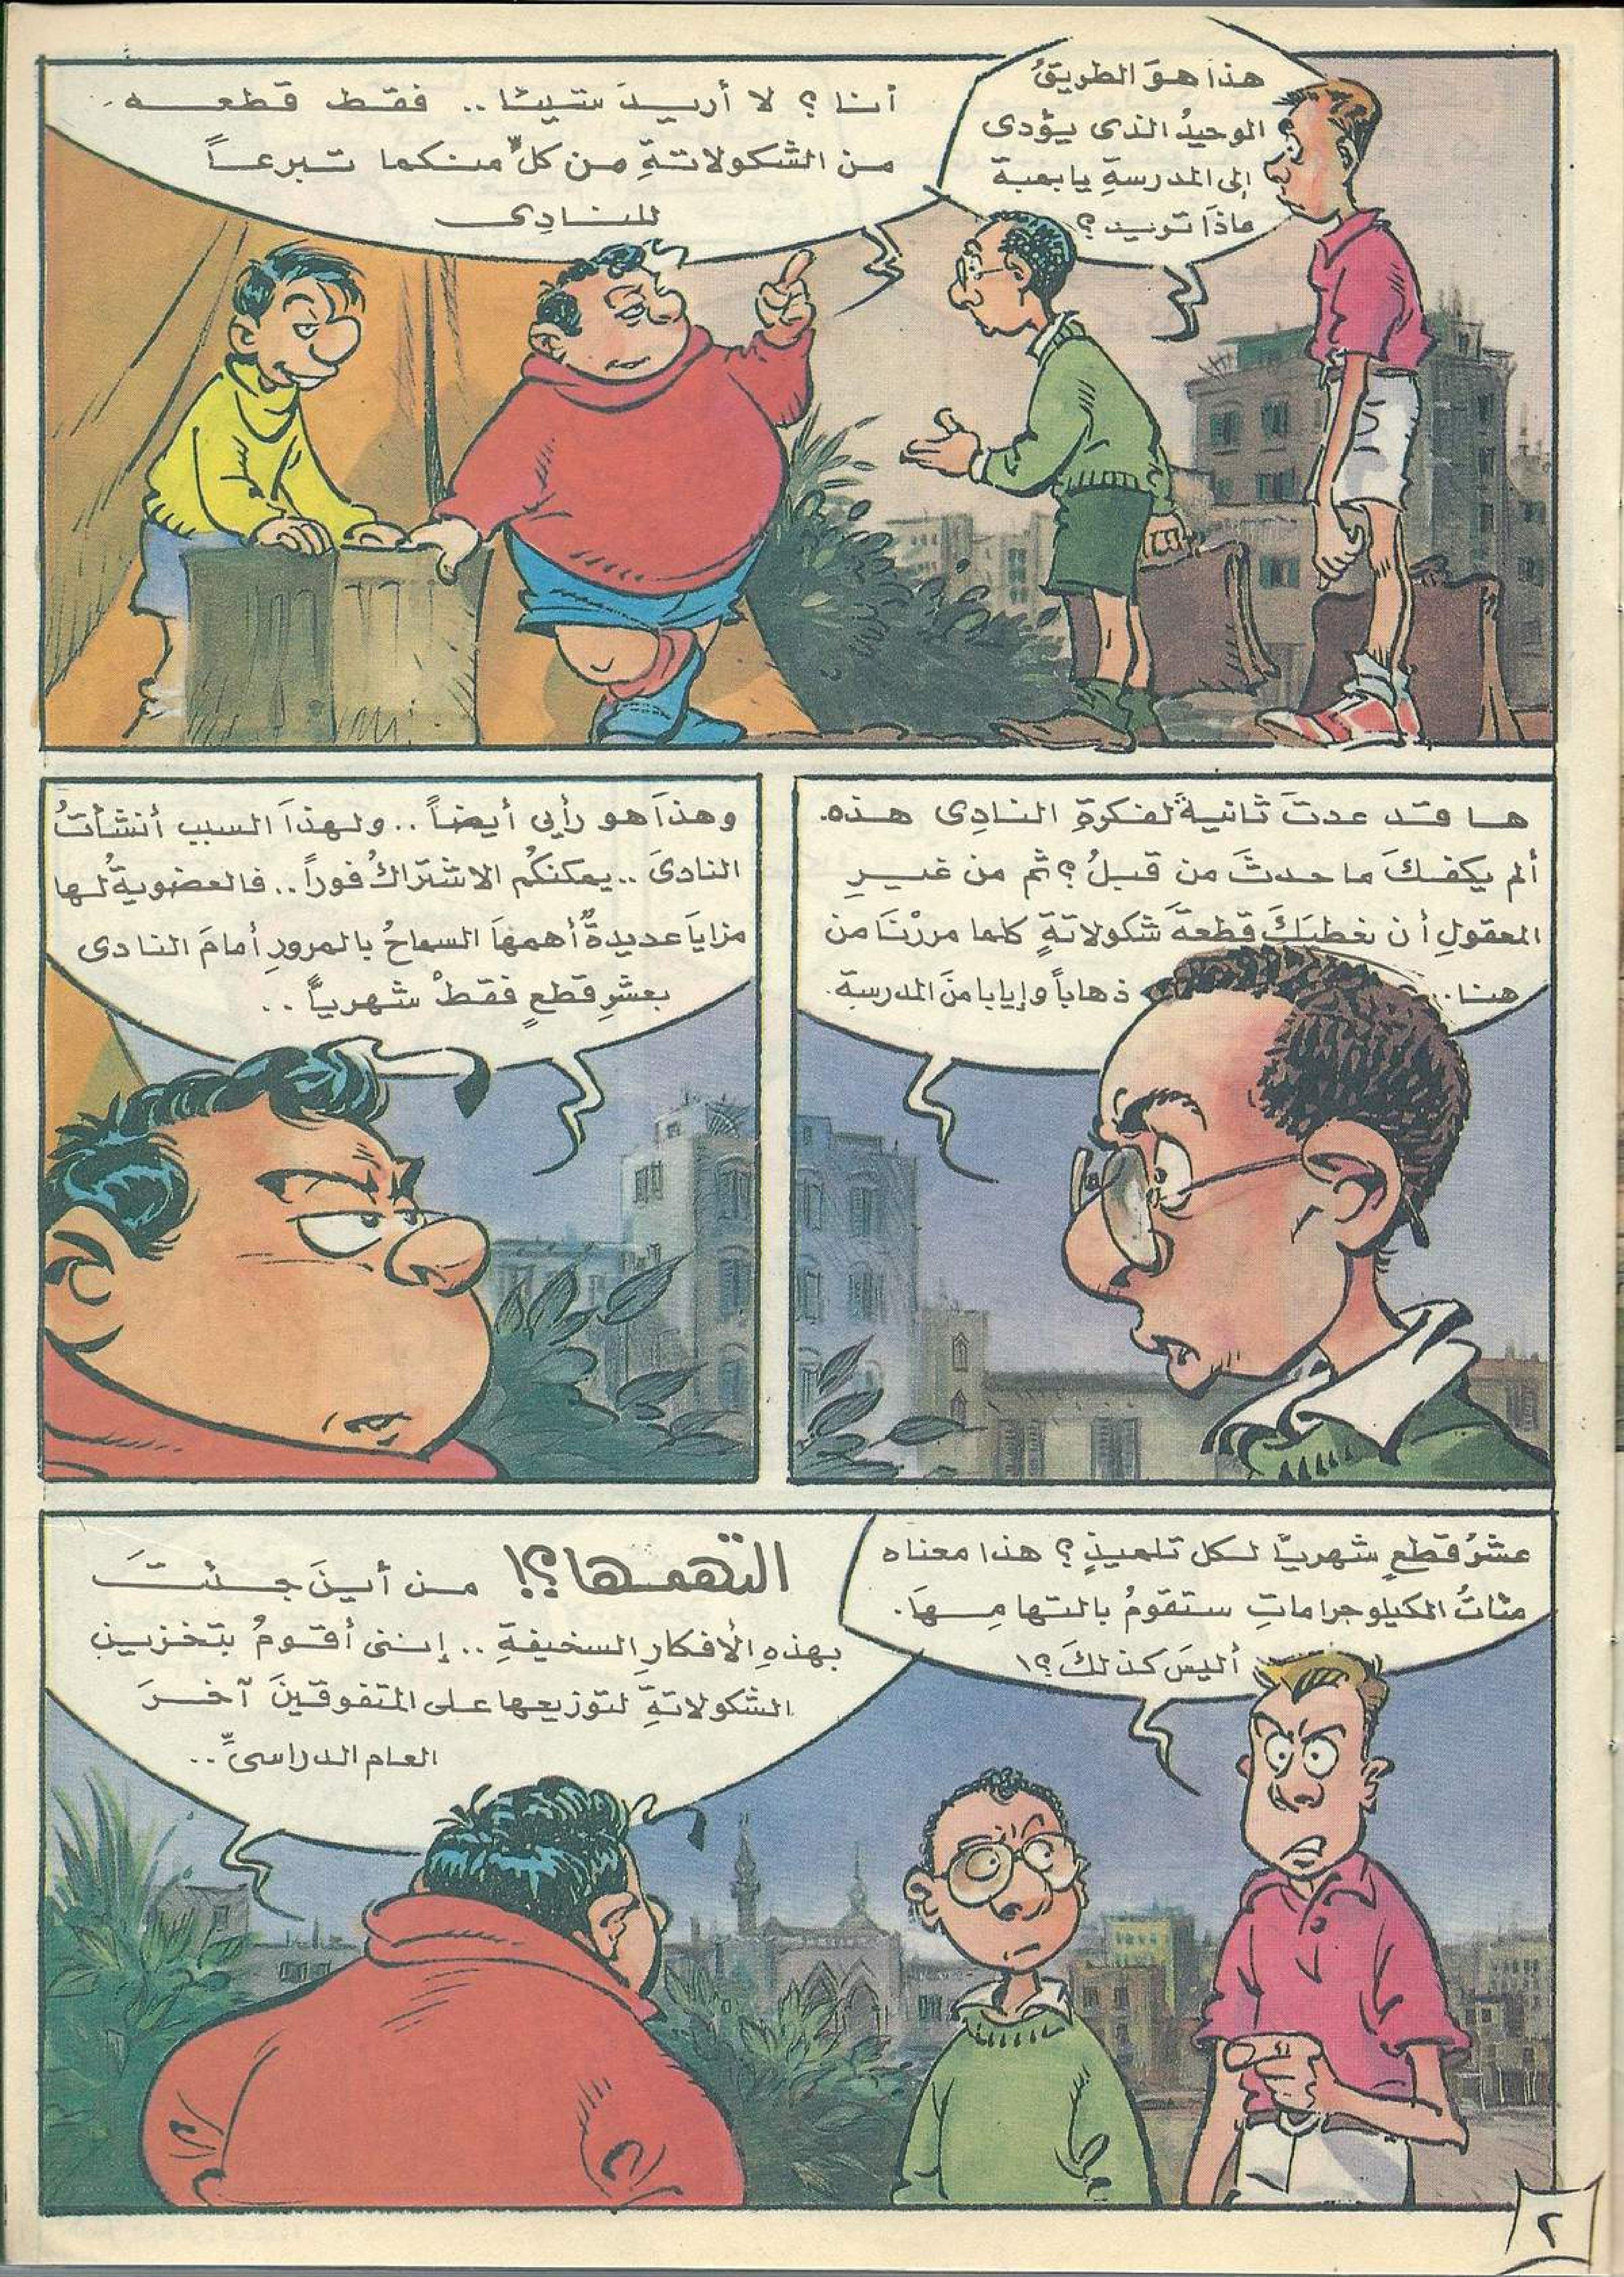 هذا هوَ الطريقُ
الوحيدُ الذى يؤدى
إلى المدرسةِ يا بعبة
ماذَا تريد؟
أنا؟ لا أريدَ شيئا.. فقط قطعه
من الشكولاتةِ من كلٍّ منكما تبرعاً
للنادِى
ها قد عدتَ ثانيةً لفكرةِ النادِى هذه.
ألم يكفكَ ما حدثَ من قبلُ؟ ثم من غيرِ
المعقولِ أن نعطيَكَ قطعةَ شكولاتةٍ كلما مررْنَا من
هنا.. ذهاباً وإيابا منَ المدرسة.
وهذَا هو رأيى أيضاً.. ولهذَا السبب أنشأتُ
النادىَ.. يمكنكُم الاشتراكُ فوراً.. فالعضويةُ لها
مزايَا عديدةٌ أهمهَا السماحُ بالمرورِ أمامَ النادى
بعشرِ قطعٍ فقطْ شهرياً..
عشرُ قطعٍ شهريًا لكل تلميذٍ؟ هذا معناه
مئاتُ الكيلوجراماتِ ستقومُ بالتهامِهَا.
أليسَ كذلكَ؟!
التهمها؟! من أينَ جئتَ
بهذهِ الأفكارِ السخيفةِ.. إننى أقومُ بتخزينِ
الشكولاتةِ لتوزيعها على المتفوقينَ آخرَ
العام الدراسىِّ..
٢